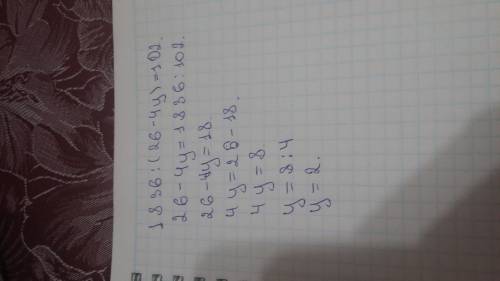 1836:(26-4y)=102.
26-4y=1836:102.
26-4y=18.
4y=26-18.
4y=8
y=8:4
y=2.